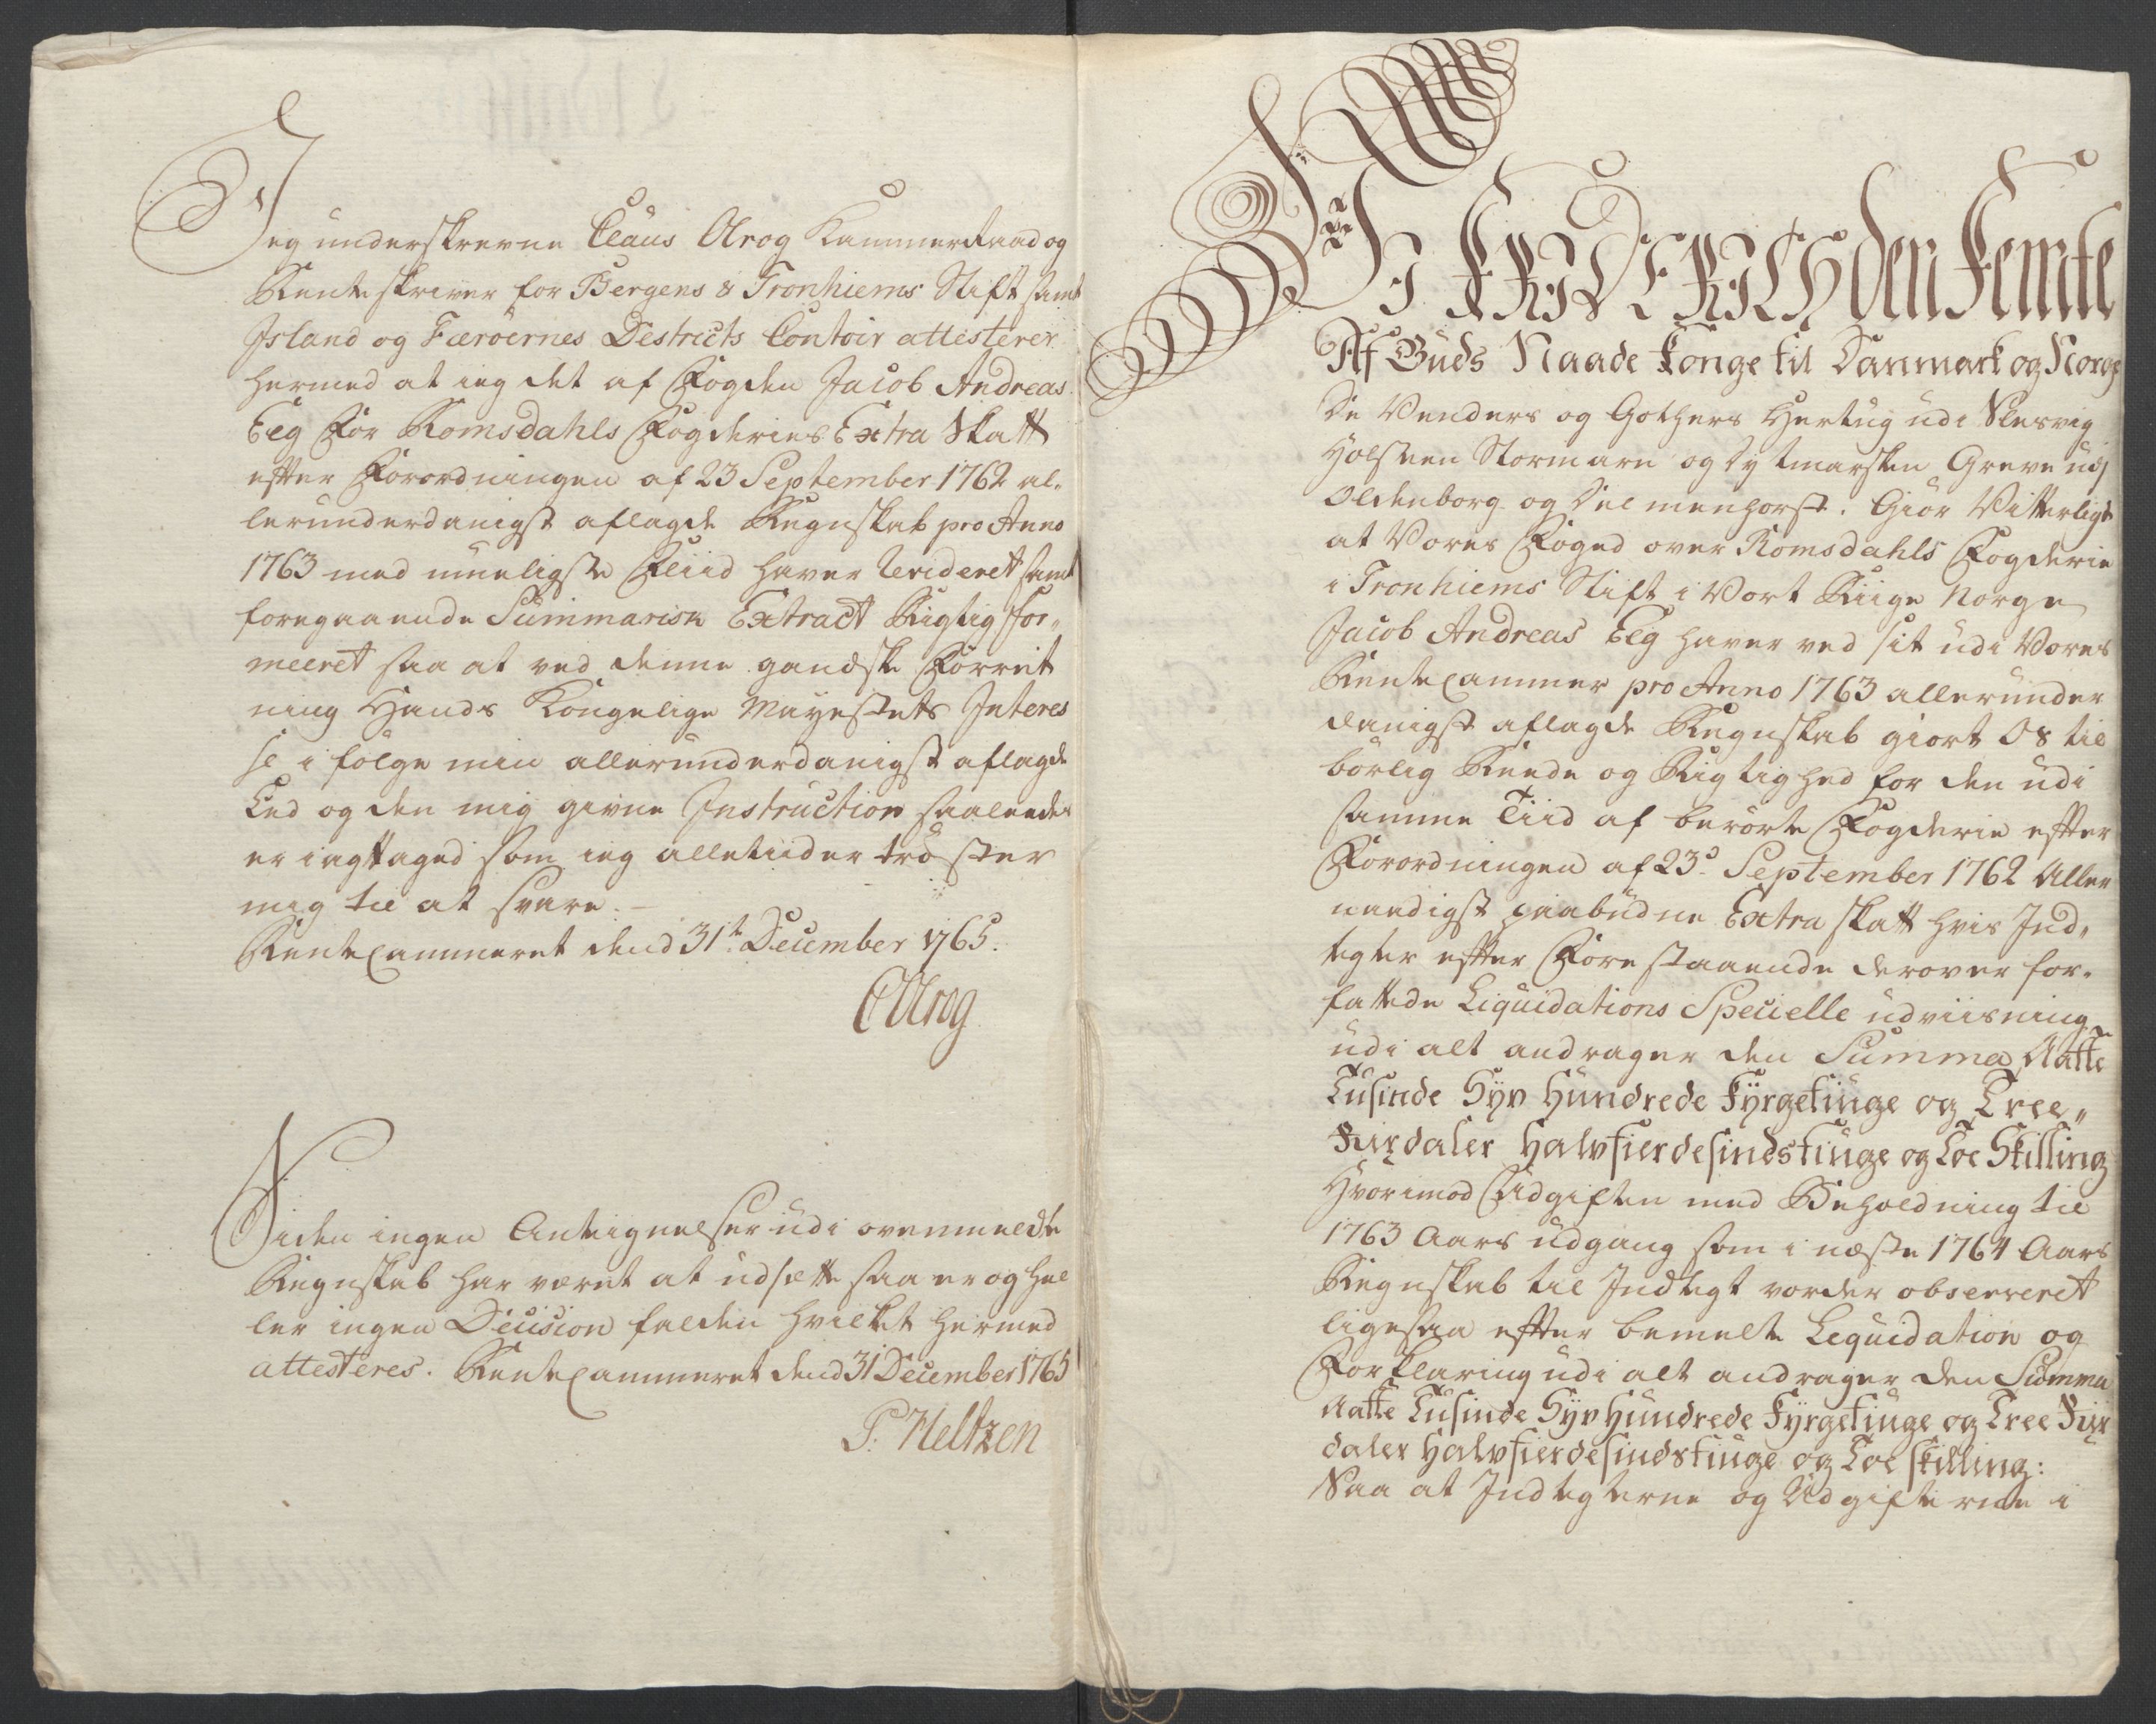 Jeg underskrevne Claus Olrog Kammerraad og
Renteskriver for Bergens & Tronhiems Stift samt
Island og Færöernes Destricts Contoir attesterer
hermed at ieg det af Fogden Jacob Andreas
Eeg For Romsdahls Fogderies Extra Skatt
efter Forordningen af 23 September 1762 al„
lerunderdanigst aflagde Regnskab pro Anno
1763 med mueligste Fliid haver Revideret samt
foregaaende Summarisk Extract Rigtig for„
meeret saa at ved denne gandske Forret
ning Hands Kongelige Mayestets Interes
se i fölge min allerunderdanigst aflagde
Eed og den mig givne Instruction saaleedes
er iagttaged som ieg alletiider tröster
mig til at svare.
Rentecammeret dend 31t December 1765.
COlrog
Siden ingen Anteignelser udi ovenmeldte
Regnskab har været at udsætte saa er og hel
ler ingen Decision falden hvilket hermed
attesteres. Rentecammeret dend 31 December 1765
P. Heltzen
Wi FRIDERICH den Femte
Af Guds Naade Konge til Danmark og Norge
De Venders og Gothers Hertug udi Slesvig
Holsteen Stormarn og Dytmarsken Greve udj
Oldenborg og Delmenhorst. Giör Vitterligt
at Vores Foged over Romsdahls Fogderie
i Tronhiems Stift i Vort Riige Norge
Jacob Andreas Eeg haver ved sit udi Vores
Rentecammer pro Anno 1763 allerunder
danigst aflagde Regnskab giort Os til
börlig Reede og Rigtighed for den udi
samme Tiid af berörte Fogderie efter
Forordningen af 23d September 1762 Aller
naadigst paabudne Extra skatt hvis Ind„
tegter efter Forestaaende derover for„
fattede Liquidations Specielle udviisning
udi alt andrager den Summa Aatte
Tusinde Syv Hundrede Fyrgetiuge og Tree„
Rixdaler Halvfierdesindstiuge og Toe Skilling
Hvorimod Udgiften med Beholdning til
1763 Aars udgang som i næste 1764 Aars
Regnskab til Indtegt vorder observeret
ligesaa efter bemelte Liquidation og
Forklaring udi alt andrager den Summa
Aatte Tusinde Syv Hundrede Fyrgetiuge og Tree Rix
daler Halvfierdesindstiuge og Toe skilling:
Saa at Indtegterne og Udgifterne i